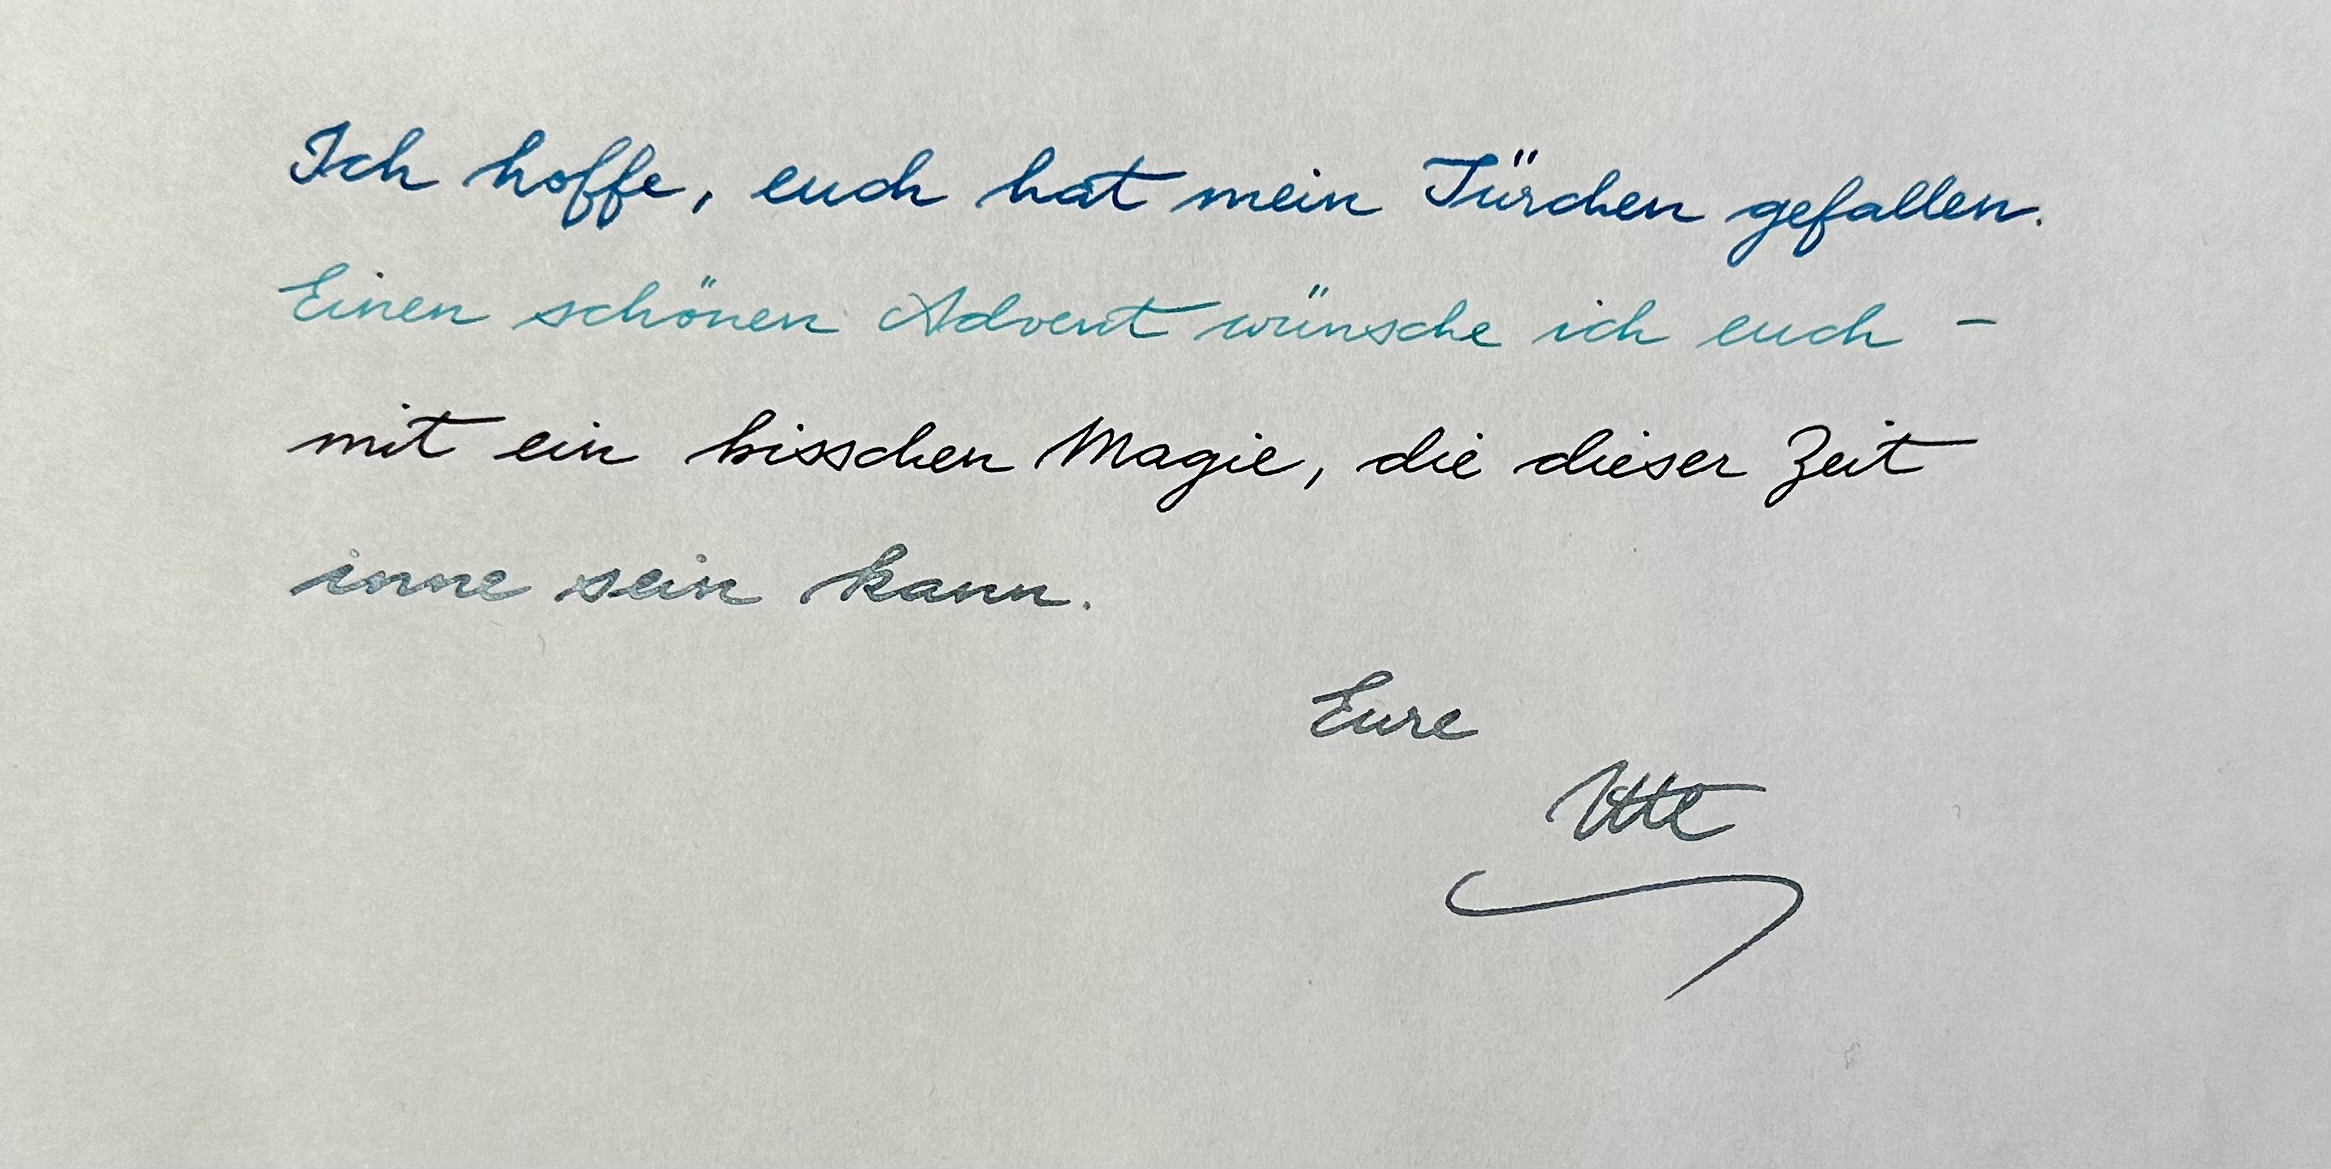 Ich hoffe, euch hat mein Türchen gefallen.
Einen schönen Advent wünsche ich euch –
mit ein bisschen Magie, die dieser Zeit
inne sein kann.
Eure
Ute